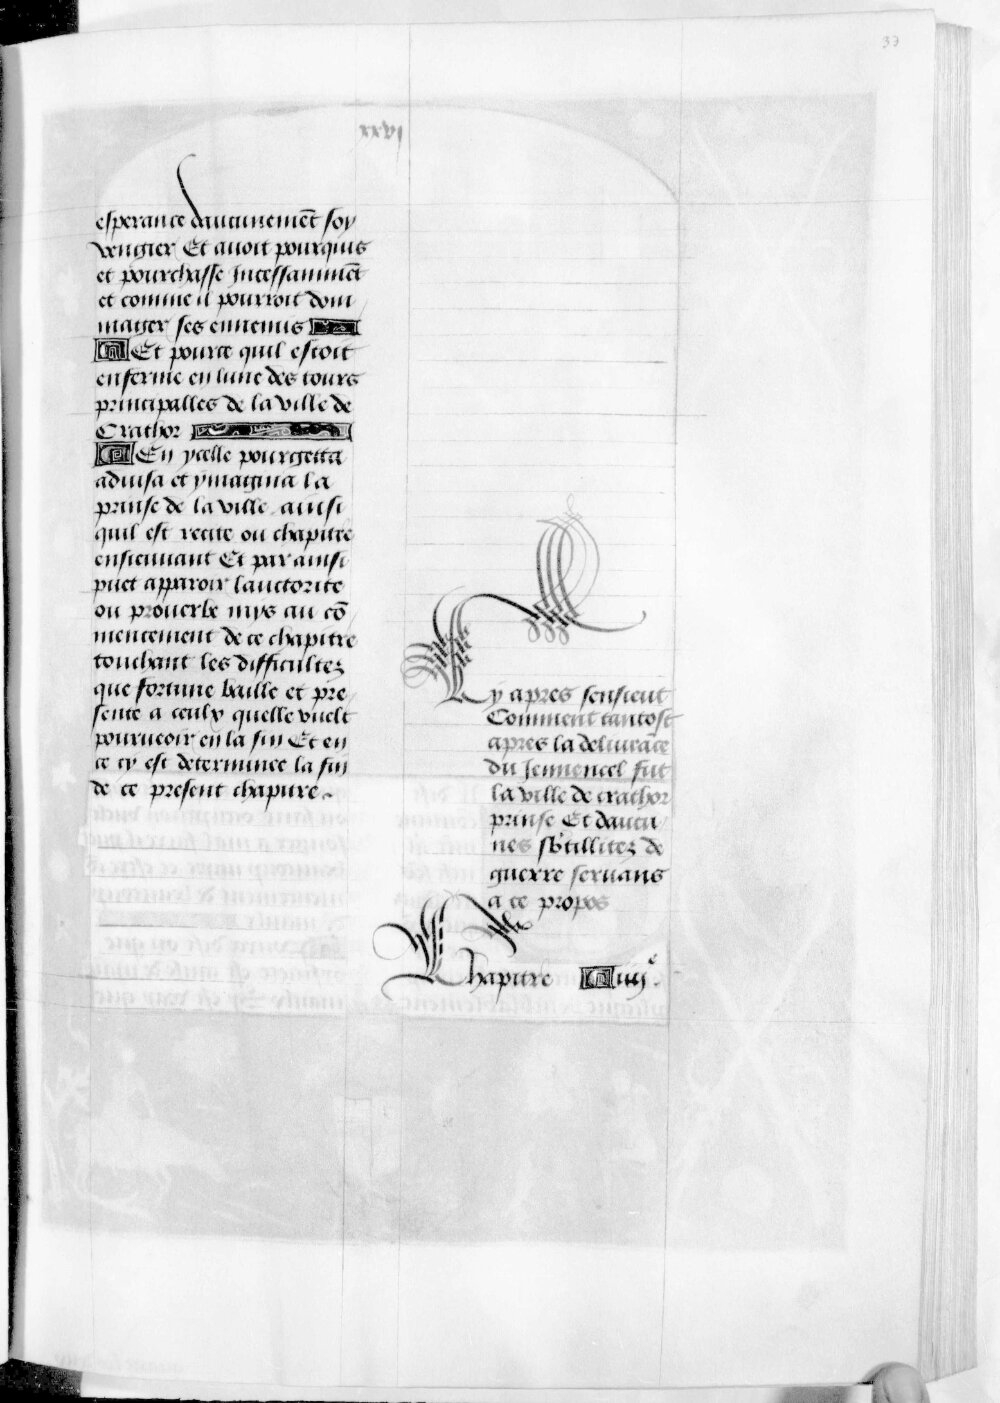 37
xxvj
esperance daucunemẽt soy
vengier Et auoit pourquis
et pourchasse Incessammẽt
et comme il pourroit dom
mager ses ennemis
Et pource quil estoit
enferme en lune des tours
principalles de la ville de
Crathor
En ycelle pourgetta
aduisa et ymagina la
prinse de la ville ainsi
quil est recite ou chapitre
ensieuuant Et par ainsi
puet apparoir lauctorite
ou prouerbe mys au cõ
mencement de ce chapitre
touchant les difficultez
que fortune baille et pre
sente a ceulx quelle vuelt
pourueoir en la fin Et en
ce cy est determinee la fin
de ce present chapitre.
Cy apres sensieut
Comment tantost
apres la deliurãce
du Jennencel fut
la ville de crathor
prinse Et daucu
nes sb̃tillitez de
guerre seruans
a ce propos
Chapitre iiij.e